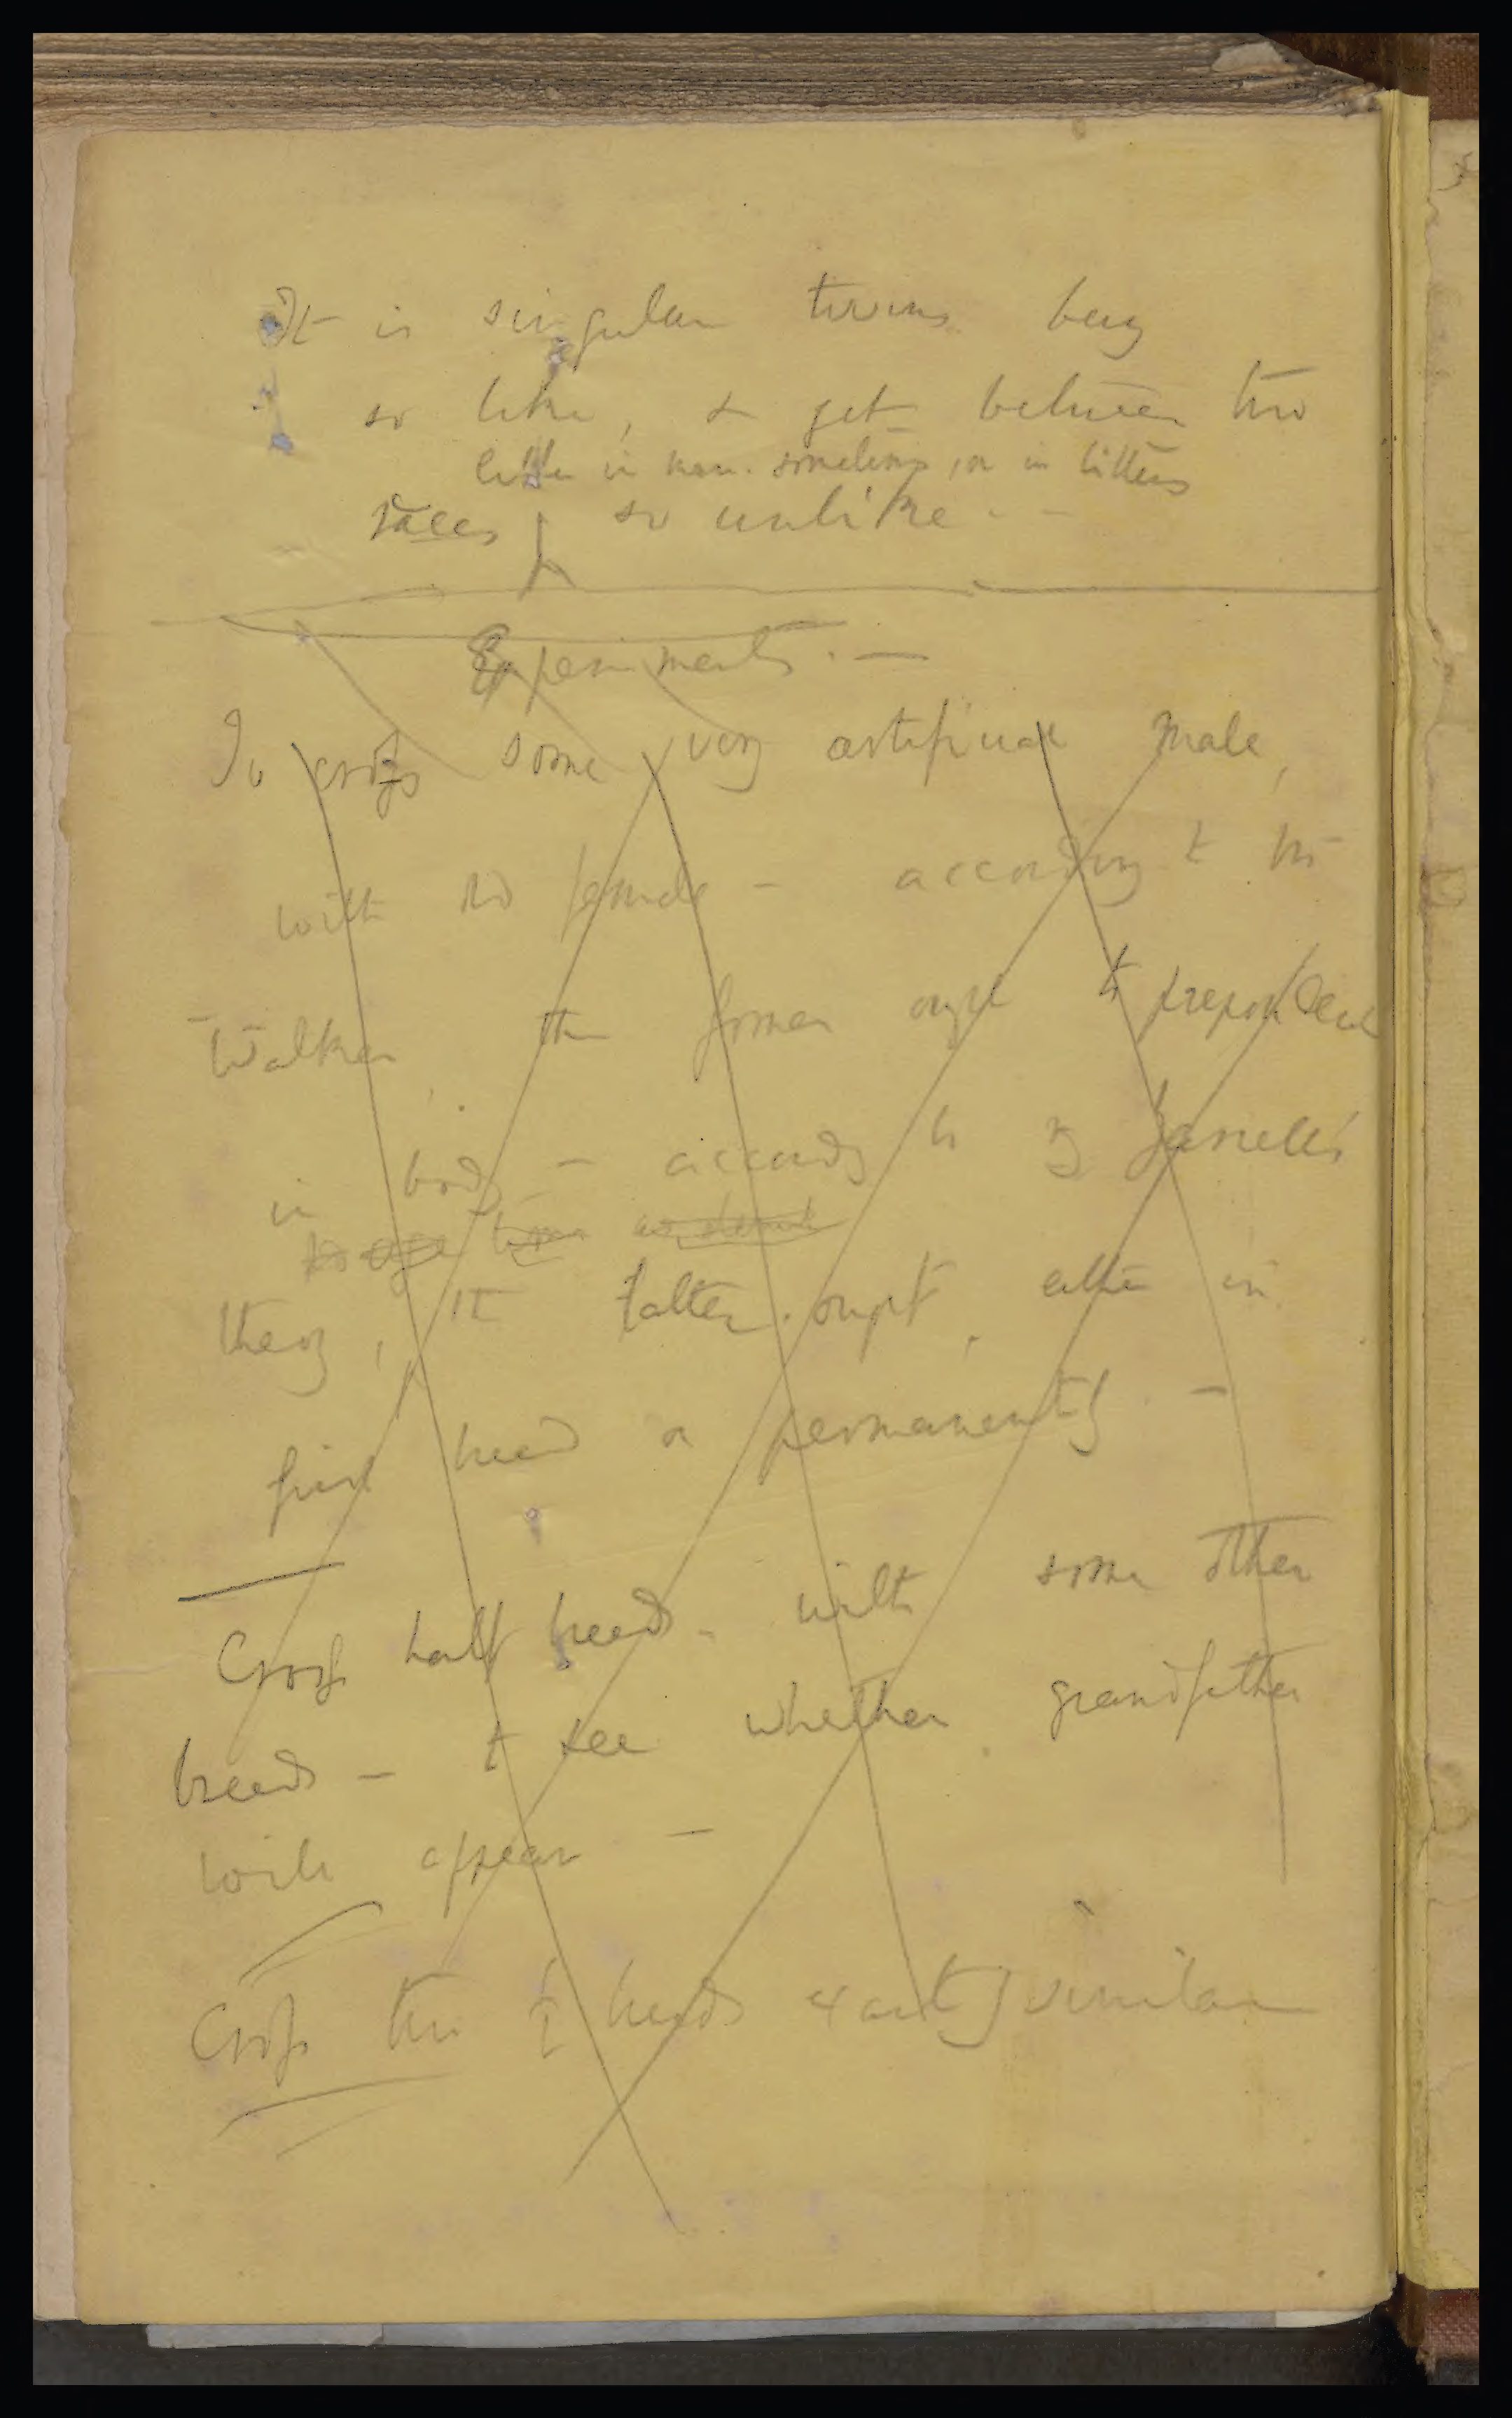 It is singular twins being
so like, & yet between two
litter in man. sometimes, or in litters
races so unlike. —
Experiments. —
To cross some very artificial male,
with old female — according to Mr
Walker the former ought to preponderate
in body — according to Yarrell's
theory, the latter ought, either in
first breed or permanently. —
Cross half breeds. with some other
breeds — to see whether grandfather
will appear —
Cross two ½ breeds exactly similar